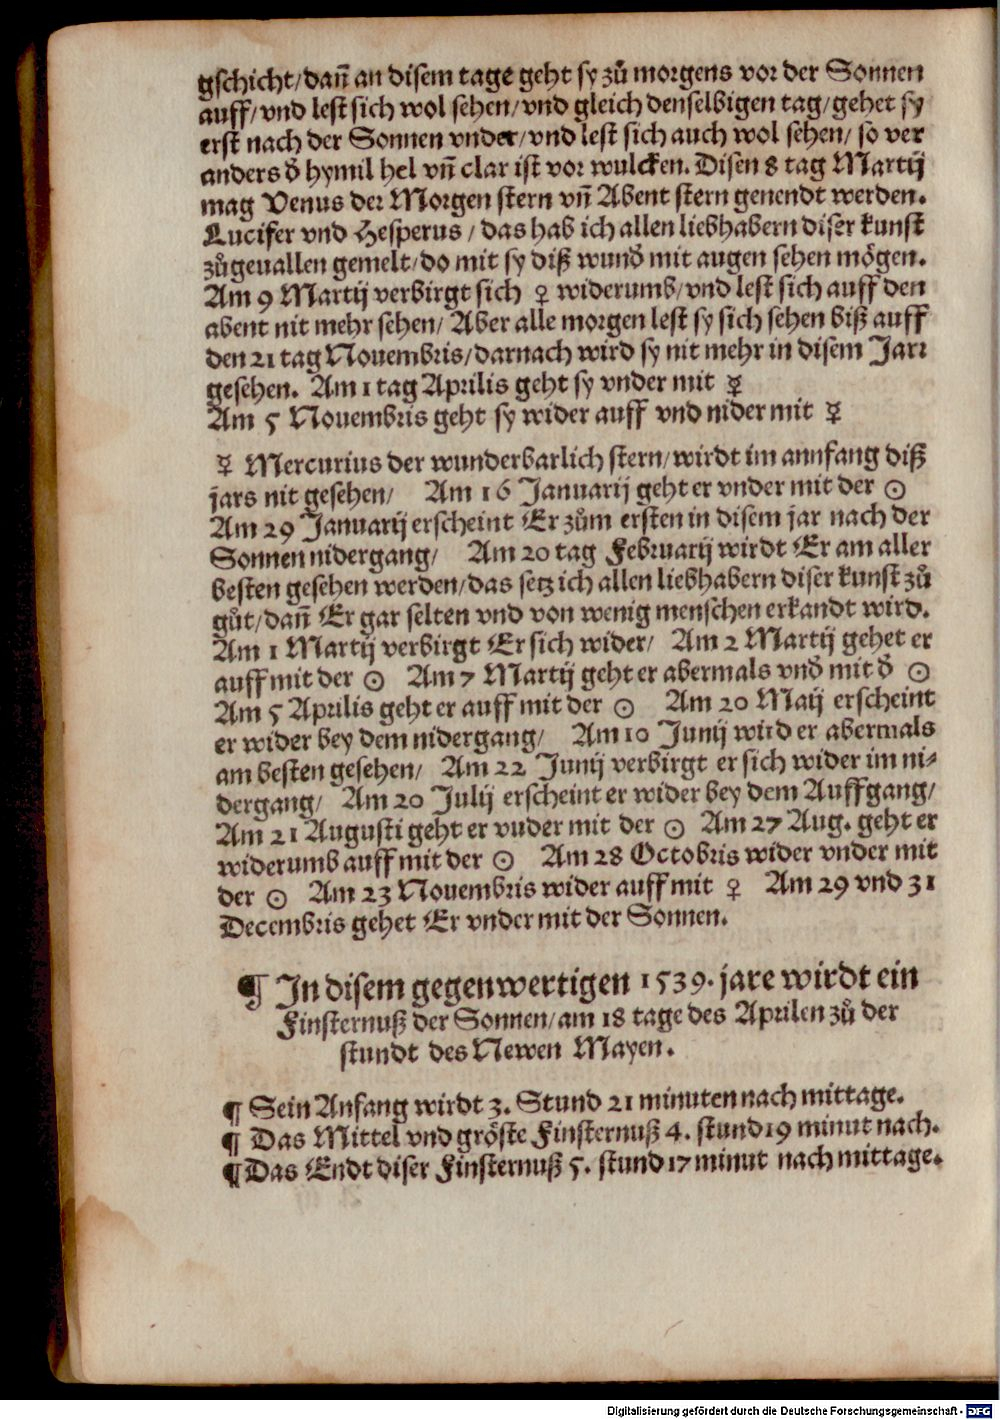 gschicht/ dañ an disem tage geht sy zů morgens vor der Sonnen
auff/ vnd lest sich wol sehen/ vnd gleich denselbigen tag/ gehet sy
erst nach der Sonnen vnder/ vnd lest sich auch wol sehen/ so ver
anders d̄ hymil hel vñ clar ist vor wulcken. Disen 8 tag Martij
mag Venus der Morgen stern vñ Abent stern genendt werden.
Lucifer vnd Hesperus / das hab ich allen liebhabern diser kunst
zůgeuallen gemelt/ do mit sy diß wund̄ mit augen sehen mögen.
Am 9 Martij verbirgt sich ♀ widerumb/ vnd lest sich auff den
abent nit mehr sehen/ Aber alle morgen lest sy sich sehen biß auff
den 21 tag Nouembris/ darnach wird sy nit mehr in disem Jarr
gesehen. Am 1 tag Aprilis geht sy vnder mit ☿
Am 5 Nouembris geht sy wider auff vnd nider mit ☿
☿ Mercurius der wunderbarlich stern/ wirdt im annfang diß
jars nit gesehen/ Am 16 Januarij geht er vnder mit der ☉
Am 29 Januarij erscheint Er zům ersten in disem jar nach der
Sonnen nidergang/ Am 20 tag Februarij wirdt Er am aller
besten gesehen werden/ das setz ich allen liebhabern diser kunst zů
gůt/ dañ Er gar selten vnd von wenig menschen erkandt wird.
Am 1 Martij verbirgt Er sich wider/ Am 2 Martij gehet er
auff mit der ☉ Am 7 Martij geht er abermals vnd̄ mit d̄ ☉
Am 5 Aprilis geht er auff mit der ☉ Am 20 Maij erscheint
er wider bey dem nidergang/ Am 10 Junij wird er abermals
am besten gesehen/ Am 22 Junij verbirgt er sich wider im ni-
dergang/ Am 20 Julij erscheint er wider bey dem Auffgang/
Am 21 Augusti geht er vnder mit der ☉ Am 27 Aug. geht er
widerumb auff mit der ☉ Am 28 Octobris wider vnder mit
der ☉ Am 23 Nouembris wider auff mit ♀ Am 29 vnd 31
Decembris gehet Er vnder mit der Sonnen.
¶ In disem gegenwertigen 1539. jare wirdt ein
Finsternuß der Sonnen/ am 18 tage des Aprilen zů der
stundt des Newen Mayen.
¶ Sein Anfang wirdt 3. Stund 21 minuten nach mittage.
¶ Das Mittel vnd gröste Finsternuß 4. stund 19 minut nach.
¶ Das Endt diser Finsternuß 5. stund 17 minut nach mittage.
Digitalisierung gefördert durch die Deutsche Forschungsgemeinschaft - DFG